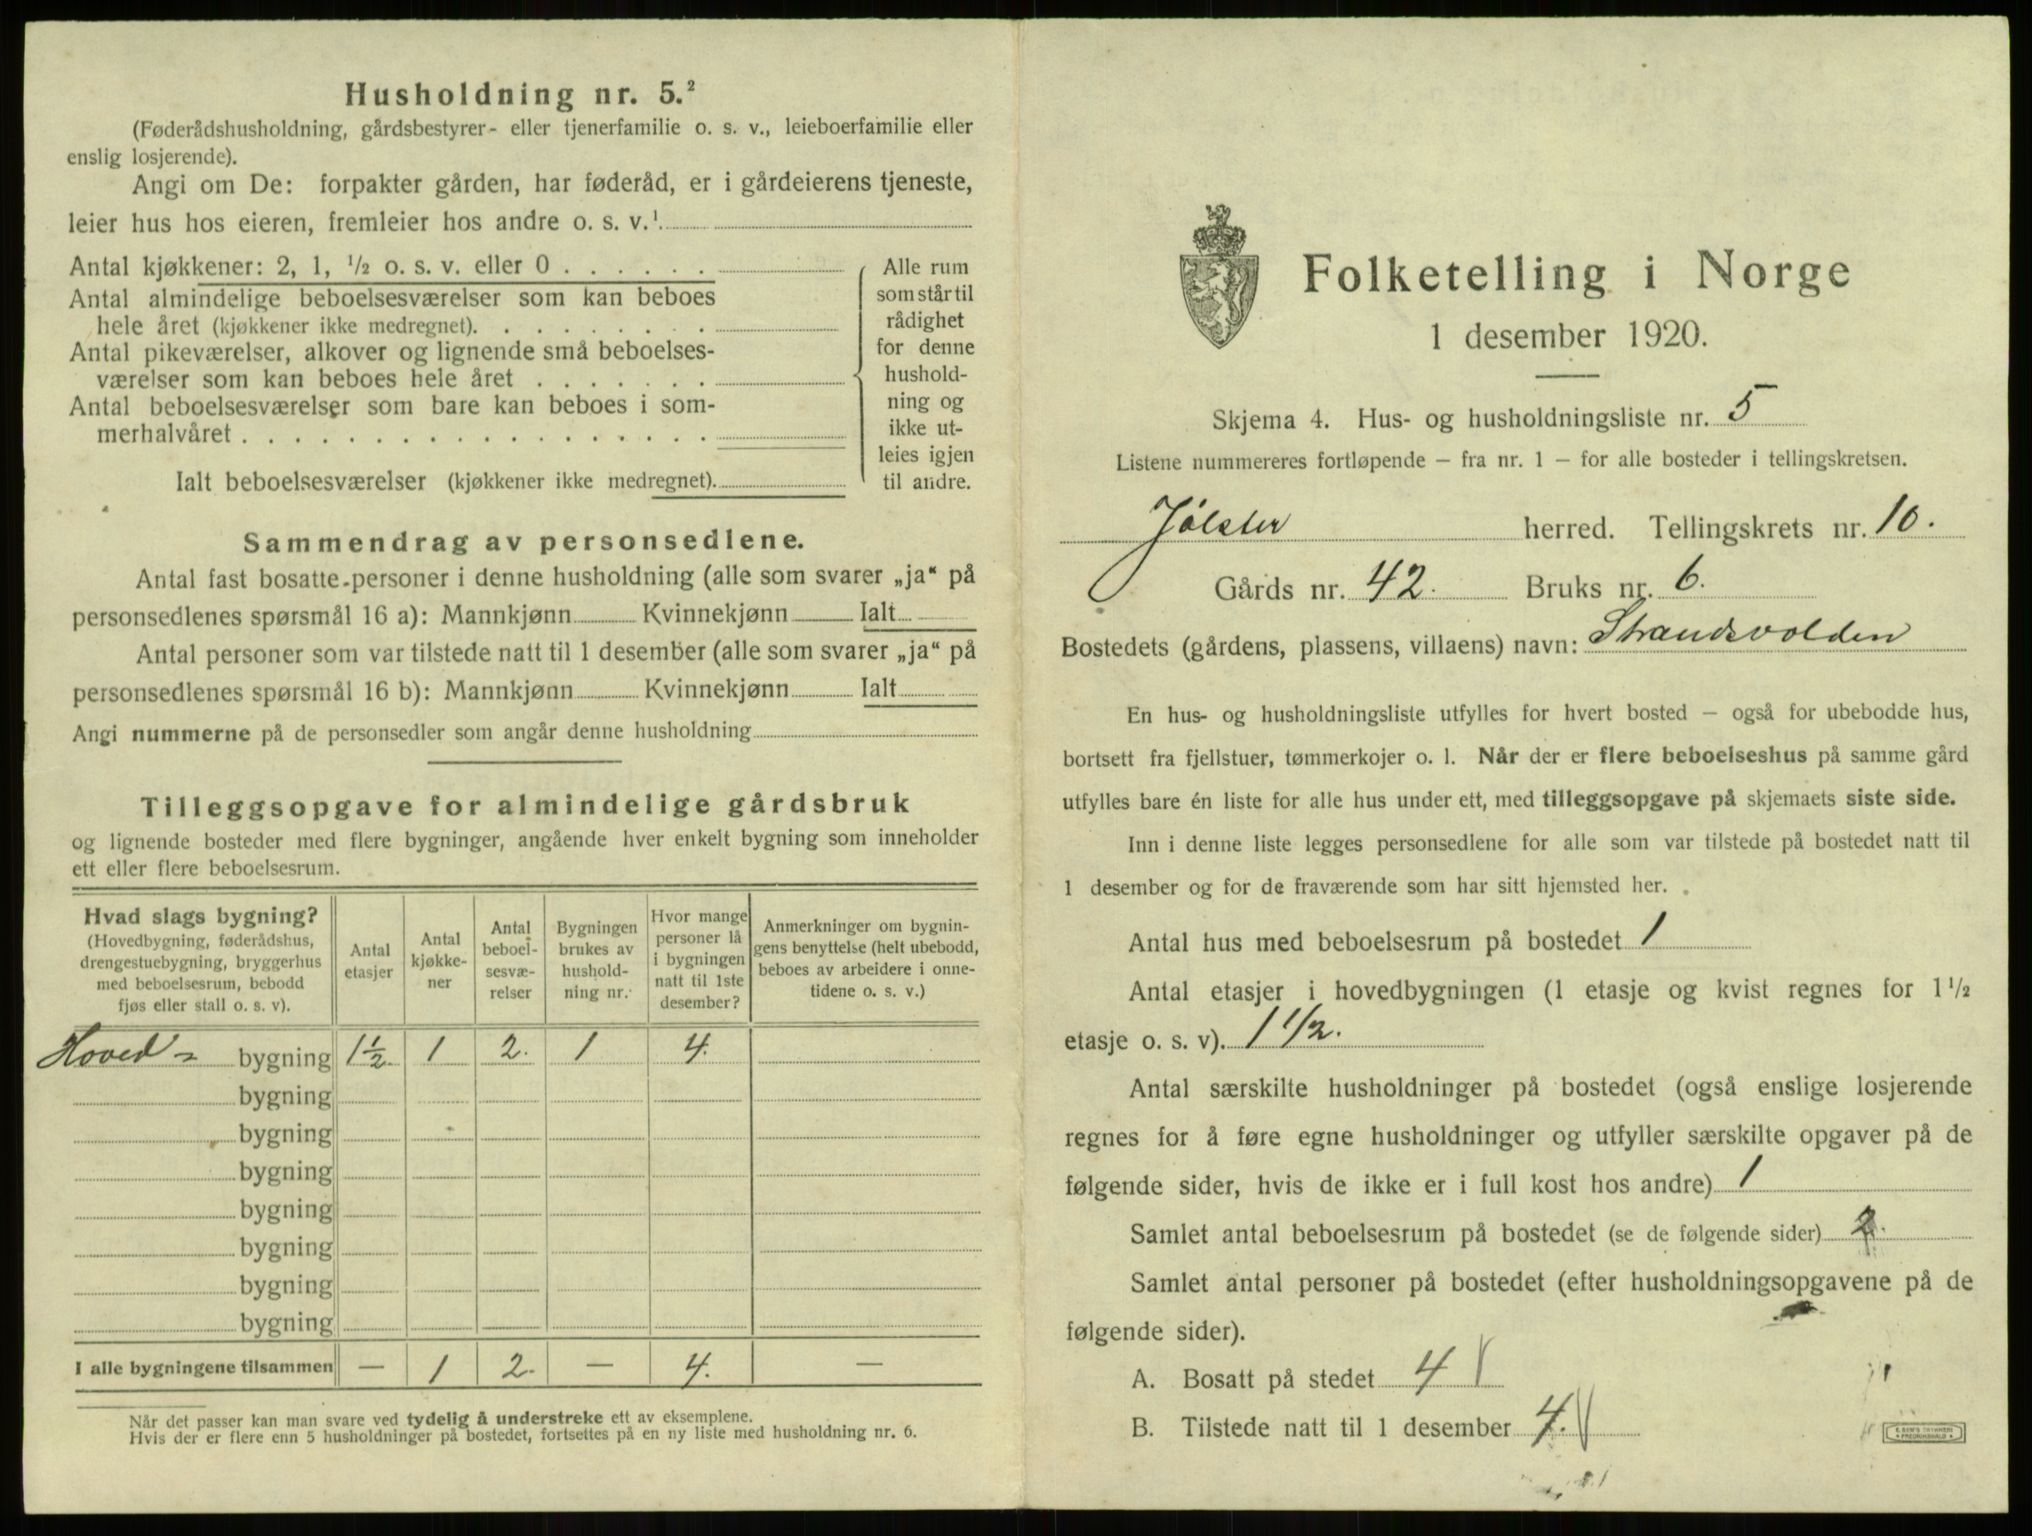 Husholdning nr. 5.²
(Føderådshusholdning, gårdsbestyrer- eller tjenerfamilie o. s. v., leieboerfamilie eller
enslig losjerende).
Angi om De: forpakter gården, har føderåd, er i gårdeierens tjeneste,
leier hus hos eieren, fremleier hos andre o. s. v.¹
Antal kjøkkener: 2, 1, ½ o. s. v. eller 0 . . . . . .
Antal almindelige beboelsesværelser som kan beboes
hele året (kjøkkener ikke medregnet). . . . . . . . .
Antal pikeværelser, alkover og lignende små beboelses-
værelser som kan beboes hele året . . . . . . .
Antal beboelsesværelser som bare kan beboes i som-
merhalvåret . . . . . . . . . . . . . . . . . .
Ialt beboelsesværelser (kjøkkener ikke medregnet).
Alle rum
som står til
rådighet
for denne
hushold-
ning og
ikke ut-
leies igjen
til andre.
Sammendrag av personsedlene.
Antal fast bosatte personer i denne husholdning (alle som svarer „ja“ på
personsedlenes spørsmål 16 a): Mannkjønn Kvinnekjønn Ialt
Antal personer som var tilstede natt til 1 desember (alle som svarer „ja“ på
personsedlenes spørsmål 16 b): Mannkjønn Kvinnekjønn Ialt
Angi nummerne på de personsedler som angår denne husholdning
Tilleggsopgave for almindelige gårdsbruk
og lignende bosteder med flere bygninger, angående hver enkelt bygning som inneholder
ett eller flere beboelsesrum.
Hvad slags bygning?
(Hovedbygning, føderådshus,
drengestuebygning, bryggerhus
med beboelsesrum, bebodd
fjøs eller stall o. s. v).
Antal
etasjer
Antal
kjøkke-
ner
Antal
beboel-
sesvæ-
relser
Bygningen
brukes av
hushold-
ning nr.
Hvor mange
personer lå
i bygningen
natt til 1ste
desember?
Anmerkninger om bygnin-
gens benyttelse (helt ubebodd,
beboes av arbeidere i onne-
tidene o. s. v.)
Hoved- bygning 1½ 1 2. 1 4.
bygning
bygning
bygning
bygning
bygning
bygning
bygning
I alle bygningene tilsammen — 1 2. — 4. —
Når det passer kan man svare ved tydelig å understreke ett av eksemplene.
Hvis der er flere enn 5 husholdninger på bostedet, fortsettes på en ny liste med husholdning nr. 6.
Folketelling i Norge
1 desember 1920.
Skjema 4. Hus- og husholdningsliste nr. 5
Listene nummereres fortløpende — fra nr. 1 — for alle bosteder i tellingskretsen.
Jølster herred. Tellingskrets nr. 10.
Gårds nr. 42. Bruks nr. 6.
Bostedets (gårdens, plassens, villaens) navn: Strandsvolden
En hus- og husholdningsliste utfylles for hvert bosted — også for ubebodde hus,
bortsett fra fjellstuer, tømmerkojer o. l. Når der er flere beboelseshus på samme gård
utfylles bare én liste for alle hus under ett, med tilleggsopgave på skjemaets siste side.
Inn i denne liste legges personsedlene for alle som var tilstede på bostedet natt til
1 desember og for de fraværende som har sitt hjemsted her.
Antal hus med beboelsesrum på bostedet 1
Antal etasjer i hovedbygningen (1 etasje og kvist regnes for 1½
etasje o. s. v). 1 1/2.
Antal særskilte husholdninger på bostedet (også enslige losjerende
regnes for å føre egne husholdninger og utfyller særskilte opgaver på de
følgende sider, hvis de ikke er i full kost hos andre) 1
Samlet antal beboelsesrum på bostedet (se de følgende sider) 2.
Samlet antal personer på bostedet (efter husholdningsopgavene på de
følgende sider).
A. Bosatt på stedet 4
B. Tilstede natt til 1 desember 4.